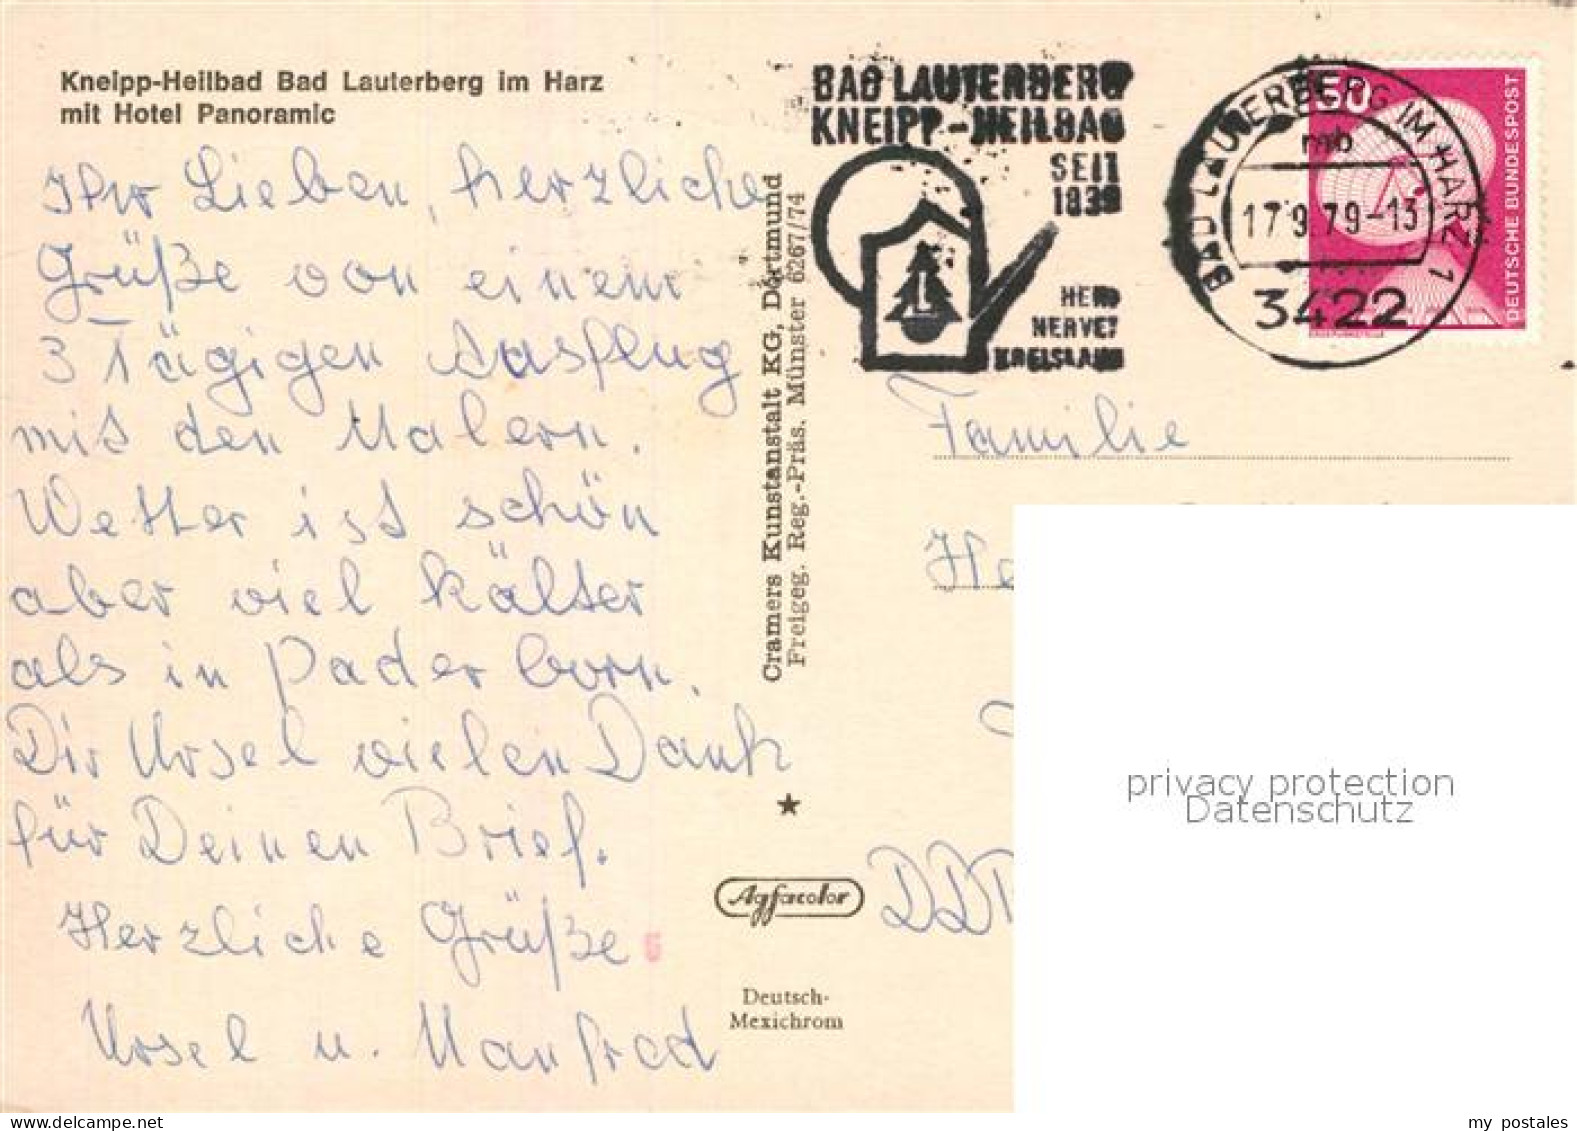 Kneipp-Heilbad Bad Lauterberg im Harz
mit Hotel Panoramic
Ihr Lieben, herzliche
Grüße von einem
3 Tägigen Ausflug
mit den Malern.
Wetter ist schön
aber viel kälter
als in Paderborn.
Dir Ursel vielen Dank
für Deinen Brief.
Herzliche Grüße
Ursel u. Manfred
Cramers Kunstanstalt KG, Dortmund
Freigeg. Reg.-Präs. Münster 6267/74
★
Agfacolor
Deutsch-
Mexichrom
BAD LAUTERBERG
KNEIPP-HEILBAD
SEIT
1839
HERZ
NERVEN
KREISLAUF
L
BAD LAUTERBERG IM HARZ 1
mb
17.9.79-13
3422
50
DEUTSCHE BUNDESPOST
Familie
He
DDR
6
privacy protection
Datenschutz
my postales